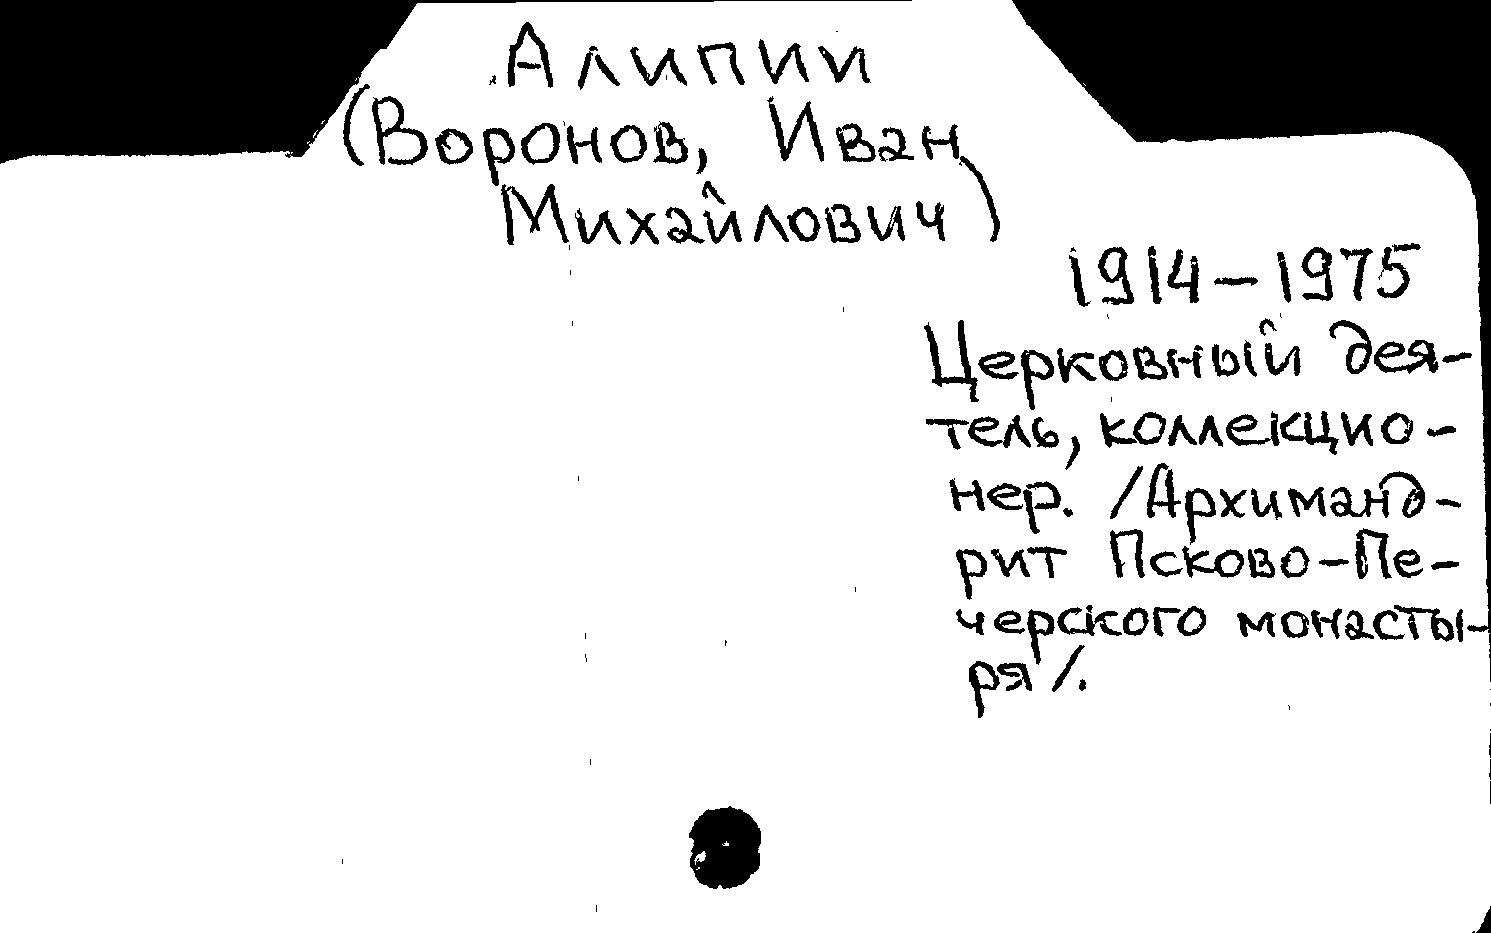 Алипии
(Воронов, Иван
Михайлович)
1914-1975
Церковный дея-
тель, коллекцио-
нер. /Архиманд-
рит Псково-Пе-
черского монасты-
ря/.